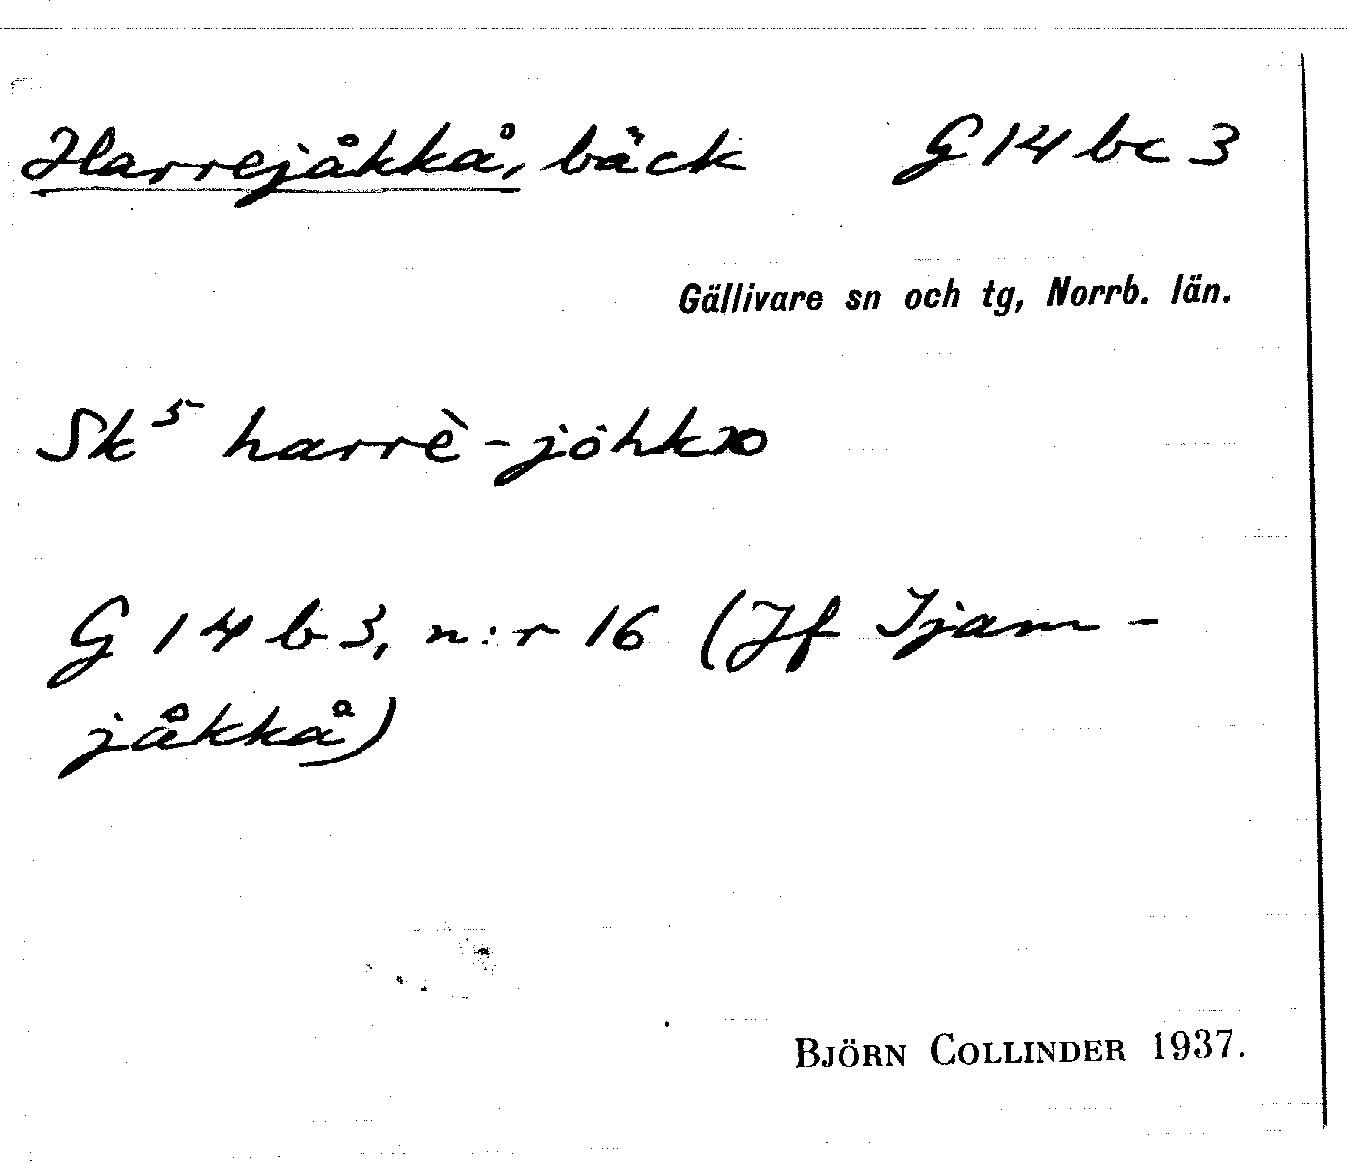 Harrejåkkå, bäck G 14 bc 3
Gällivare sn och tg, Norrb. län.
Sk⁵ harrè-jŏhkɔ
G 14 b 3, n:r 16 (Jf Ijam-
jåkkå)
BJÖRN COLLINDER 1937.